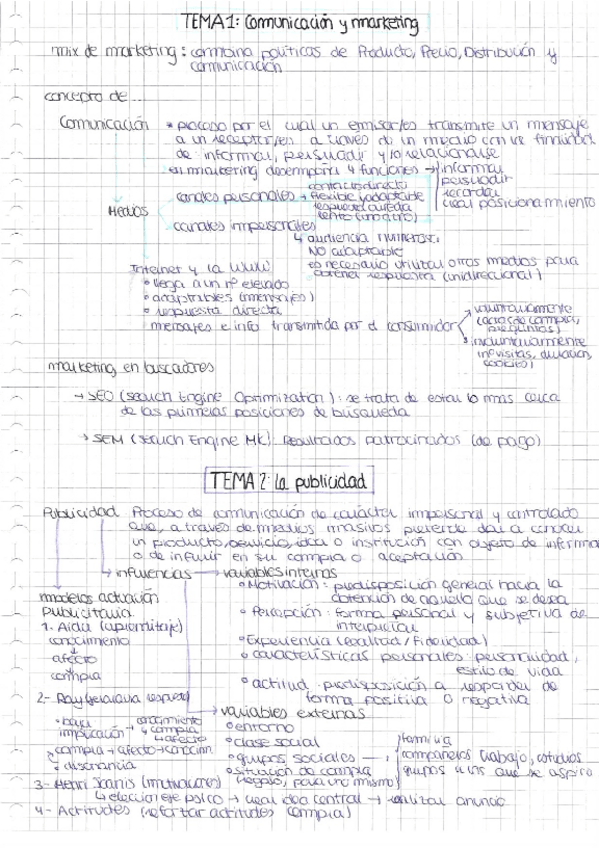 TEMA 1: Comunicación y marketing
mix de marketing: combina políticas de Producto, Precio, Distribución y
comunicación
concepto de...
Comunicación • proceso por el cual un emisor/es transmite un mensaje
a un receptor/es a través de un medio con la finalidad
de informar, persuadir y/o relacionarse
en marketing desempeña 4 funciones → informar
persuadir
recordar
crear posicionamiento
Medios
canales personales → contacto directo
flexible y adaptable
respuesta directa
lento (uno a uno)
canales impersonales
↳ audiencia numerosa
NO adaptable
es necesario utilizar otros medios para
obtener respuesta (unidireccional)
Internet y la WWW
• llega a un nº elevado
• adaptables (mensajes)
• respuesta directa
• mensajes e info transmitida por el consumidor
voluntariamente
(acto de compra,
preguntas)
involuntariamente
(nº visitas, duración,
cookies)
marketing en buscadores
→ SEO (Search Engine Optimization): se trata de estar lo mas cerca
de las primeras posiciones de búsqueda
→ SEM (Search Engine Mk) Resultados patrocinados (de pago)
TEMA 2: La publicidad
Publicidad Proceso de comunicación de carácter impersonal y controlado
que, a través de medios masivos pretende dar a conocer
un producto, servicio, idea o institución con objeto de informar
o de influir en su compra o aceptación
influencias → variables internas
• Motivación: predisposición general hacia la
obtención de aquello que se desea
• Percepción: forma personal y subjetiva de
interpretar
• Experiencia (lealtad / Fidelidad)
• características personales: personalidad,
estilo de vida
• actitud: predisposición a responder de
forma positiva o negativa
modelos actuación
publicitaria
1. Aida (aprendizaje)
conocimiento
↓
afecto
↓
compra
→ variables externas
• entorno
• clase social
• grupos sociales
familia
compañeros trabajo, estudios
grupos a los que se aspira
• Situación de compra
(regalo, para uno mismo)
2-
• baja
implicación → conocimiento
↳ compra
↳ afecto
compra → afecto → conocim.
• disonancia
3- Henri Joanis (motivaciones)
↳ elección eje psico → crear idea central → realizar anuncio
4- Actitudes (reforzar actitudes compra)